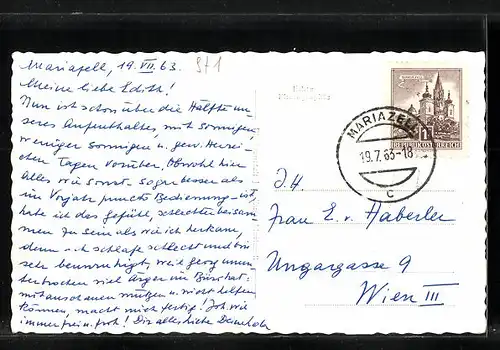 Mariazell, 19. VII. 63.
971
Meine liebe Edith!
Nun ist schon über die Hälfte un-
seres Aufenthaltes, mit sonnigen
weniger sonnigen u.
Tagen vorüber. Obwohl hier
alles wie sonst sogar besser als
im Vorjahr puncto Bedienung ist,
habe ich das Gefühl, schlechter beisam-
men zu sein als wie ich herkam,
denn ich schlafe schlecht und bin
sehr beunruhigt, weil
viel Ärger im
mitanschauen müssen u. nicht helfen
können, macht mich fertig! Ich wie
immer frei u. froh! Dir alles liebe Deine
Echte
Photographie
MARIAZELL
REPUBLIK ÖSTERREICH
MARIAZELL
19.7.63-18
C
I. H.
Frau E. v. Haberler
Ungargasse 9
Wien III